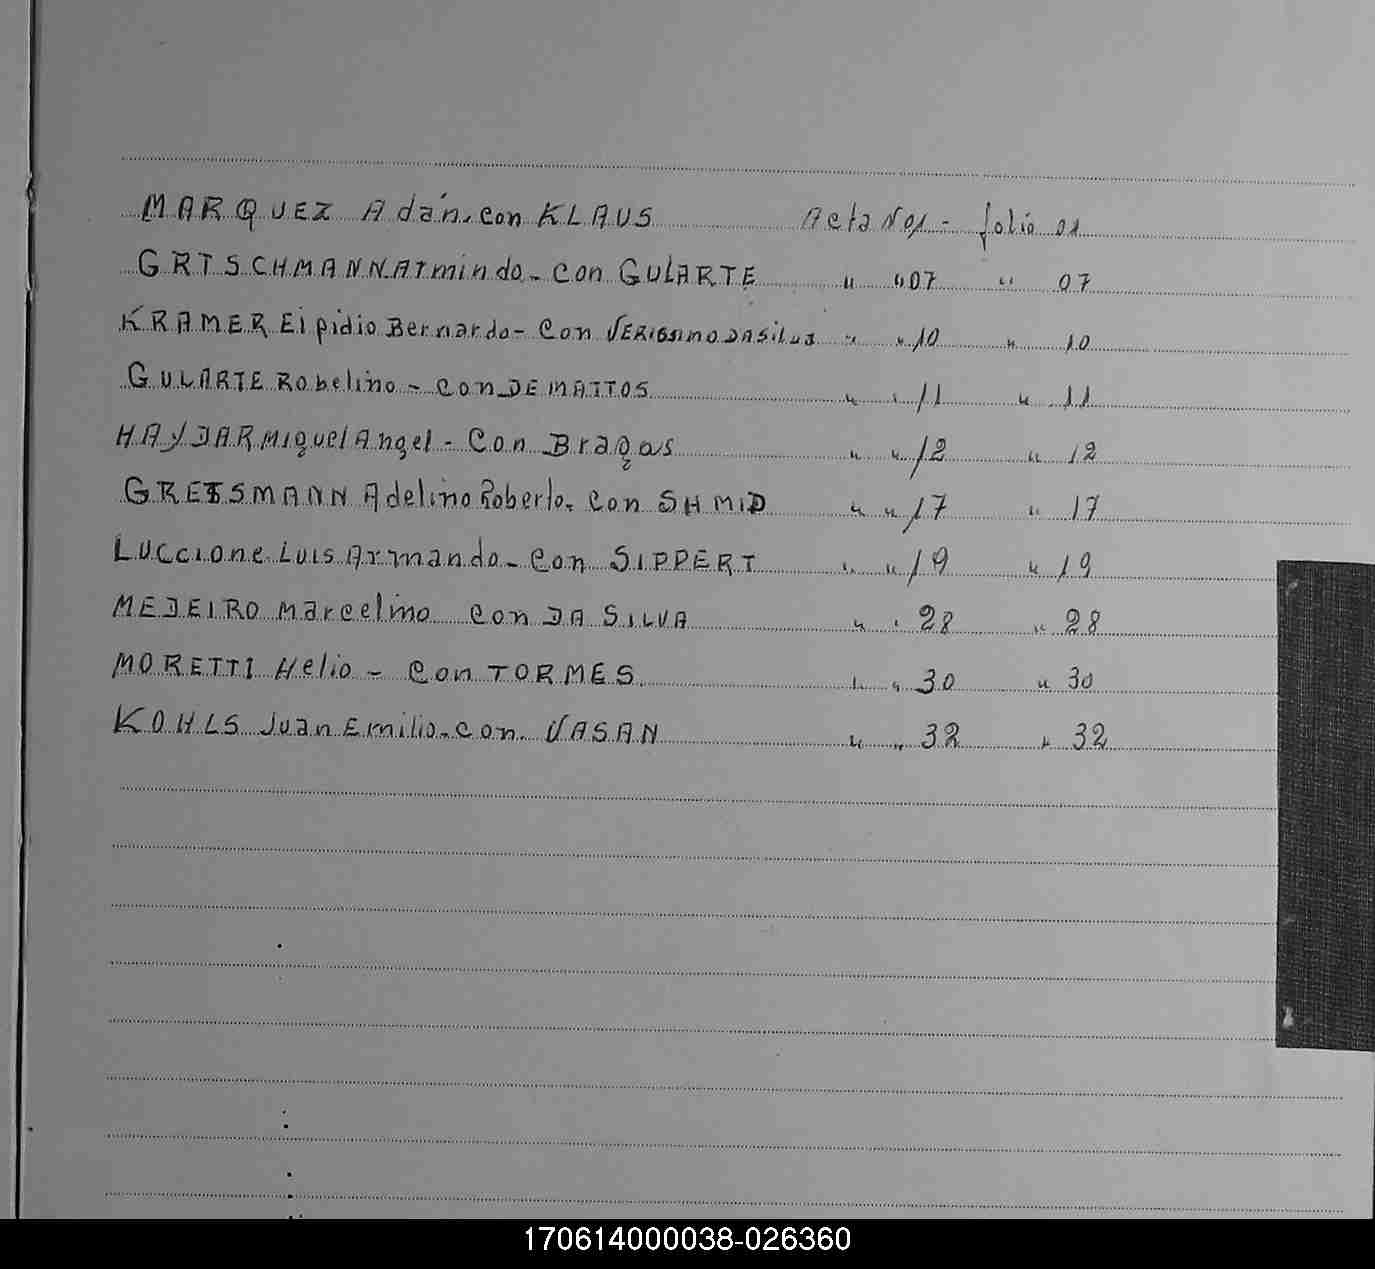 MARQUEZ Adán. con KLAUS Acta Nº1 - folio 01
GRTSCHMANN Armindo - con GULARTE " " 07 " 07
KRAMER Eipidio Bernardo - Con VERISSIMO DA SILVA " " 10 " 10
GULARTE Robelino - con DE MATTOS " " 11 " 11
HAYDAR Miguel Angel - Con Bragas " " 12 " 12
GRETSMANN Adelino Roberto. con SHMID " " 17 " 17
LUCCIONE Luis Armando - con SIPPERT " " 19 " 19
MEDEIRO Marcelino con DA SILVA " " 28 " 28
MORETTI Helio - con TORMES " " 30 " 30
KOHLS Juan Emilio - con. VASAN " " 32 " 32
170614000038-026360